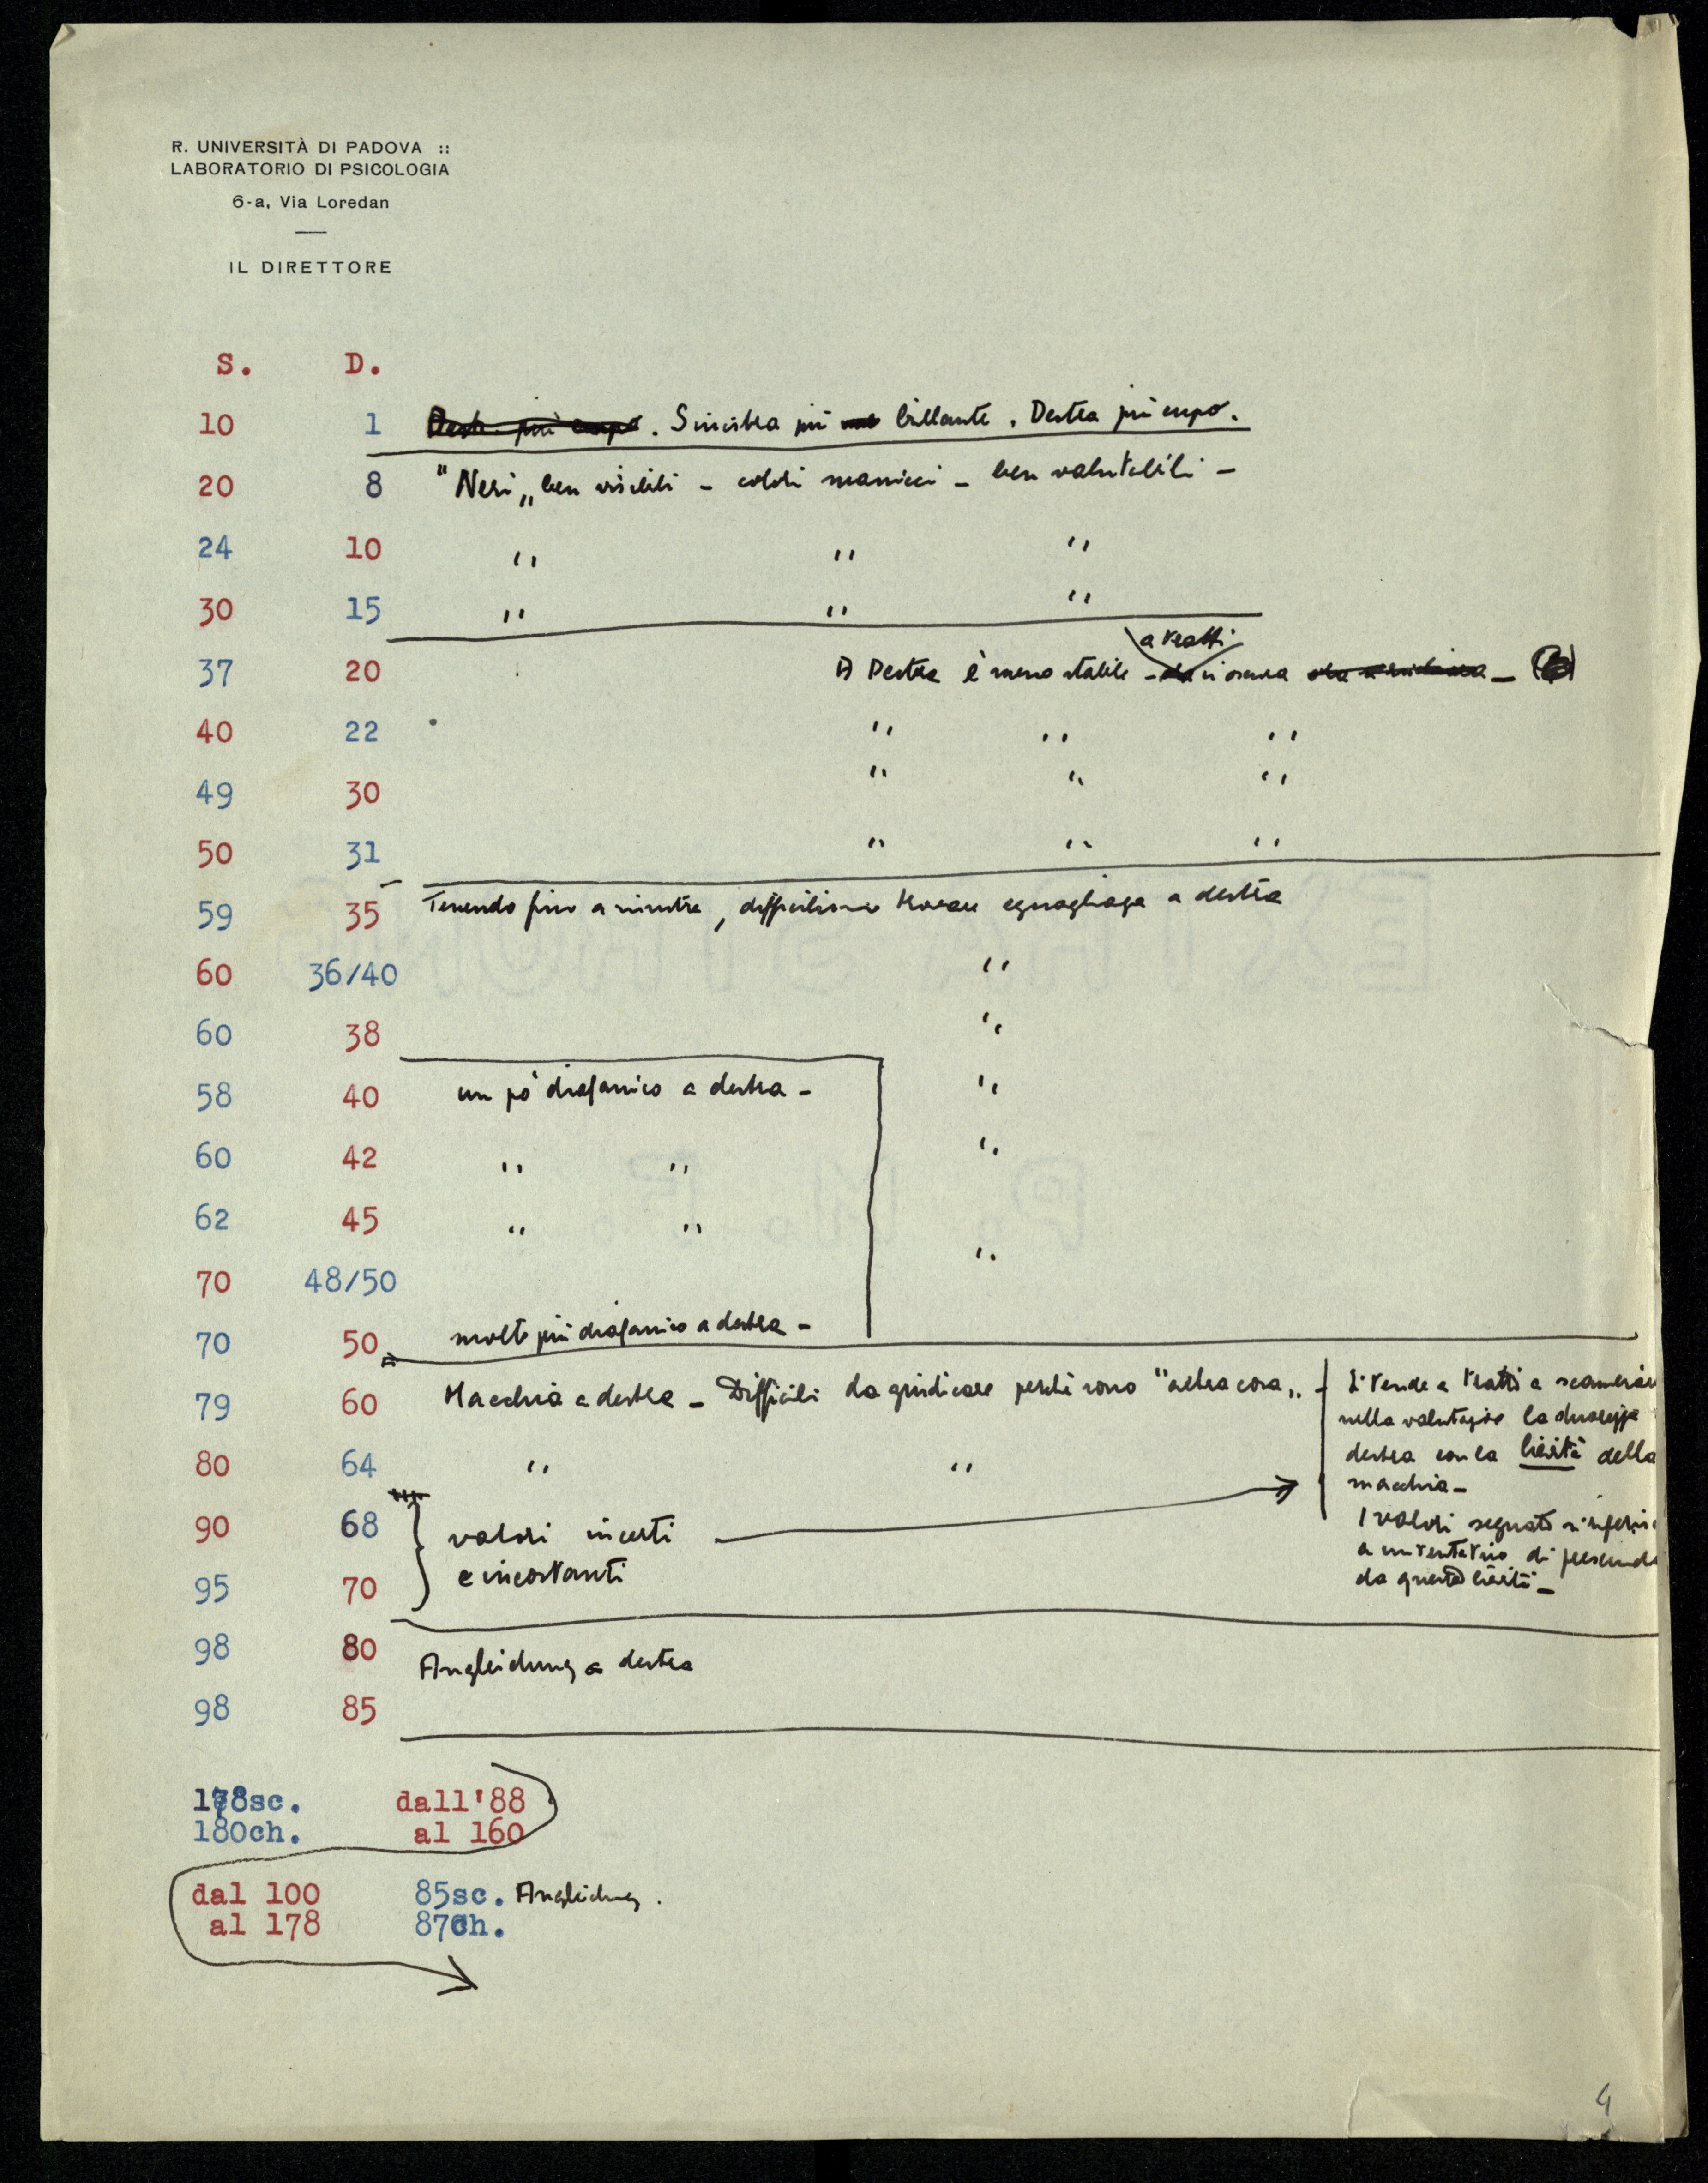 R. UNIVERSITÀ DI PADOVA ::
LABORATORIO DI PSICOLOGIA
6-a, Via Loredan
IL DIRETTORE
S. D.
10 1 Destr. più cupo. Sinistra più brillante. Destra più cupo.
20 8 "Neri„ ben visibili - colori massicci - ben valutabili -
24 10 " " "
30 15 " " "
a tratti
37 20 A Destra è meno stabile - si oscura -
40 22 " " "
49 30 " " "
50 31 " " "
59 35 Tenendo fisso a sinistra, difficilissimo trovare eguagliaza a destra
60 36/40 "
60 38 "
58 40 un pò diafanico a destra - "
60 42 " " "
62 45 " "
70 48/50 "
70 50 molto più diafanico a destra -
79 60 Macchia a destra - Difficili da giudicare perchè sono "altra cosa„ -
80 64 " "
90 68 valori incerti
95 70 e incostanti
Si tende a tratti a scambiare
nella valutazione la chiarezza
destra con la liceità della
macchia -
I valori segnati si riferis
a un tentativo di prescinde
da questa liceità -
98 80 Angleichung a destra
98 85
178sc. dall'88
180ch. al 160
dal 100 85sc. Angleichung.
al 178 87Ch.
4